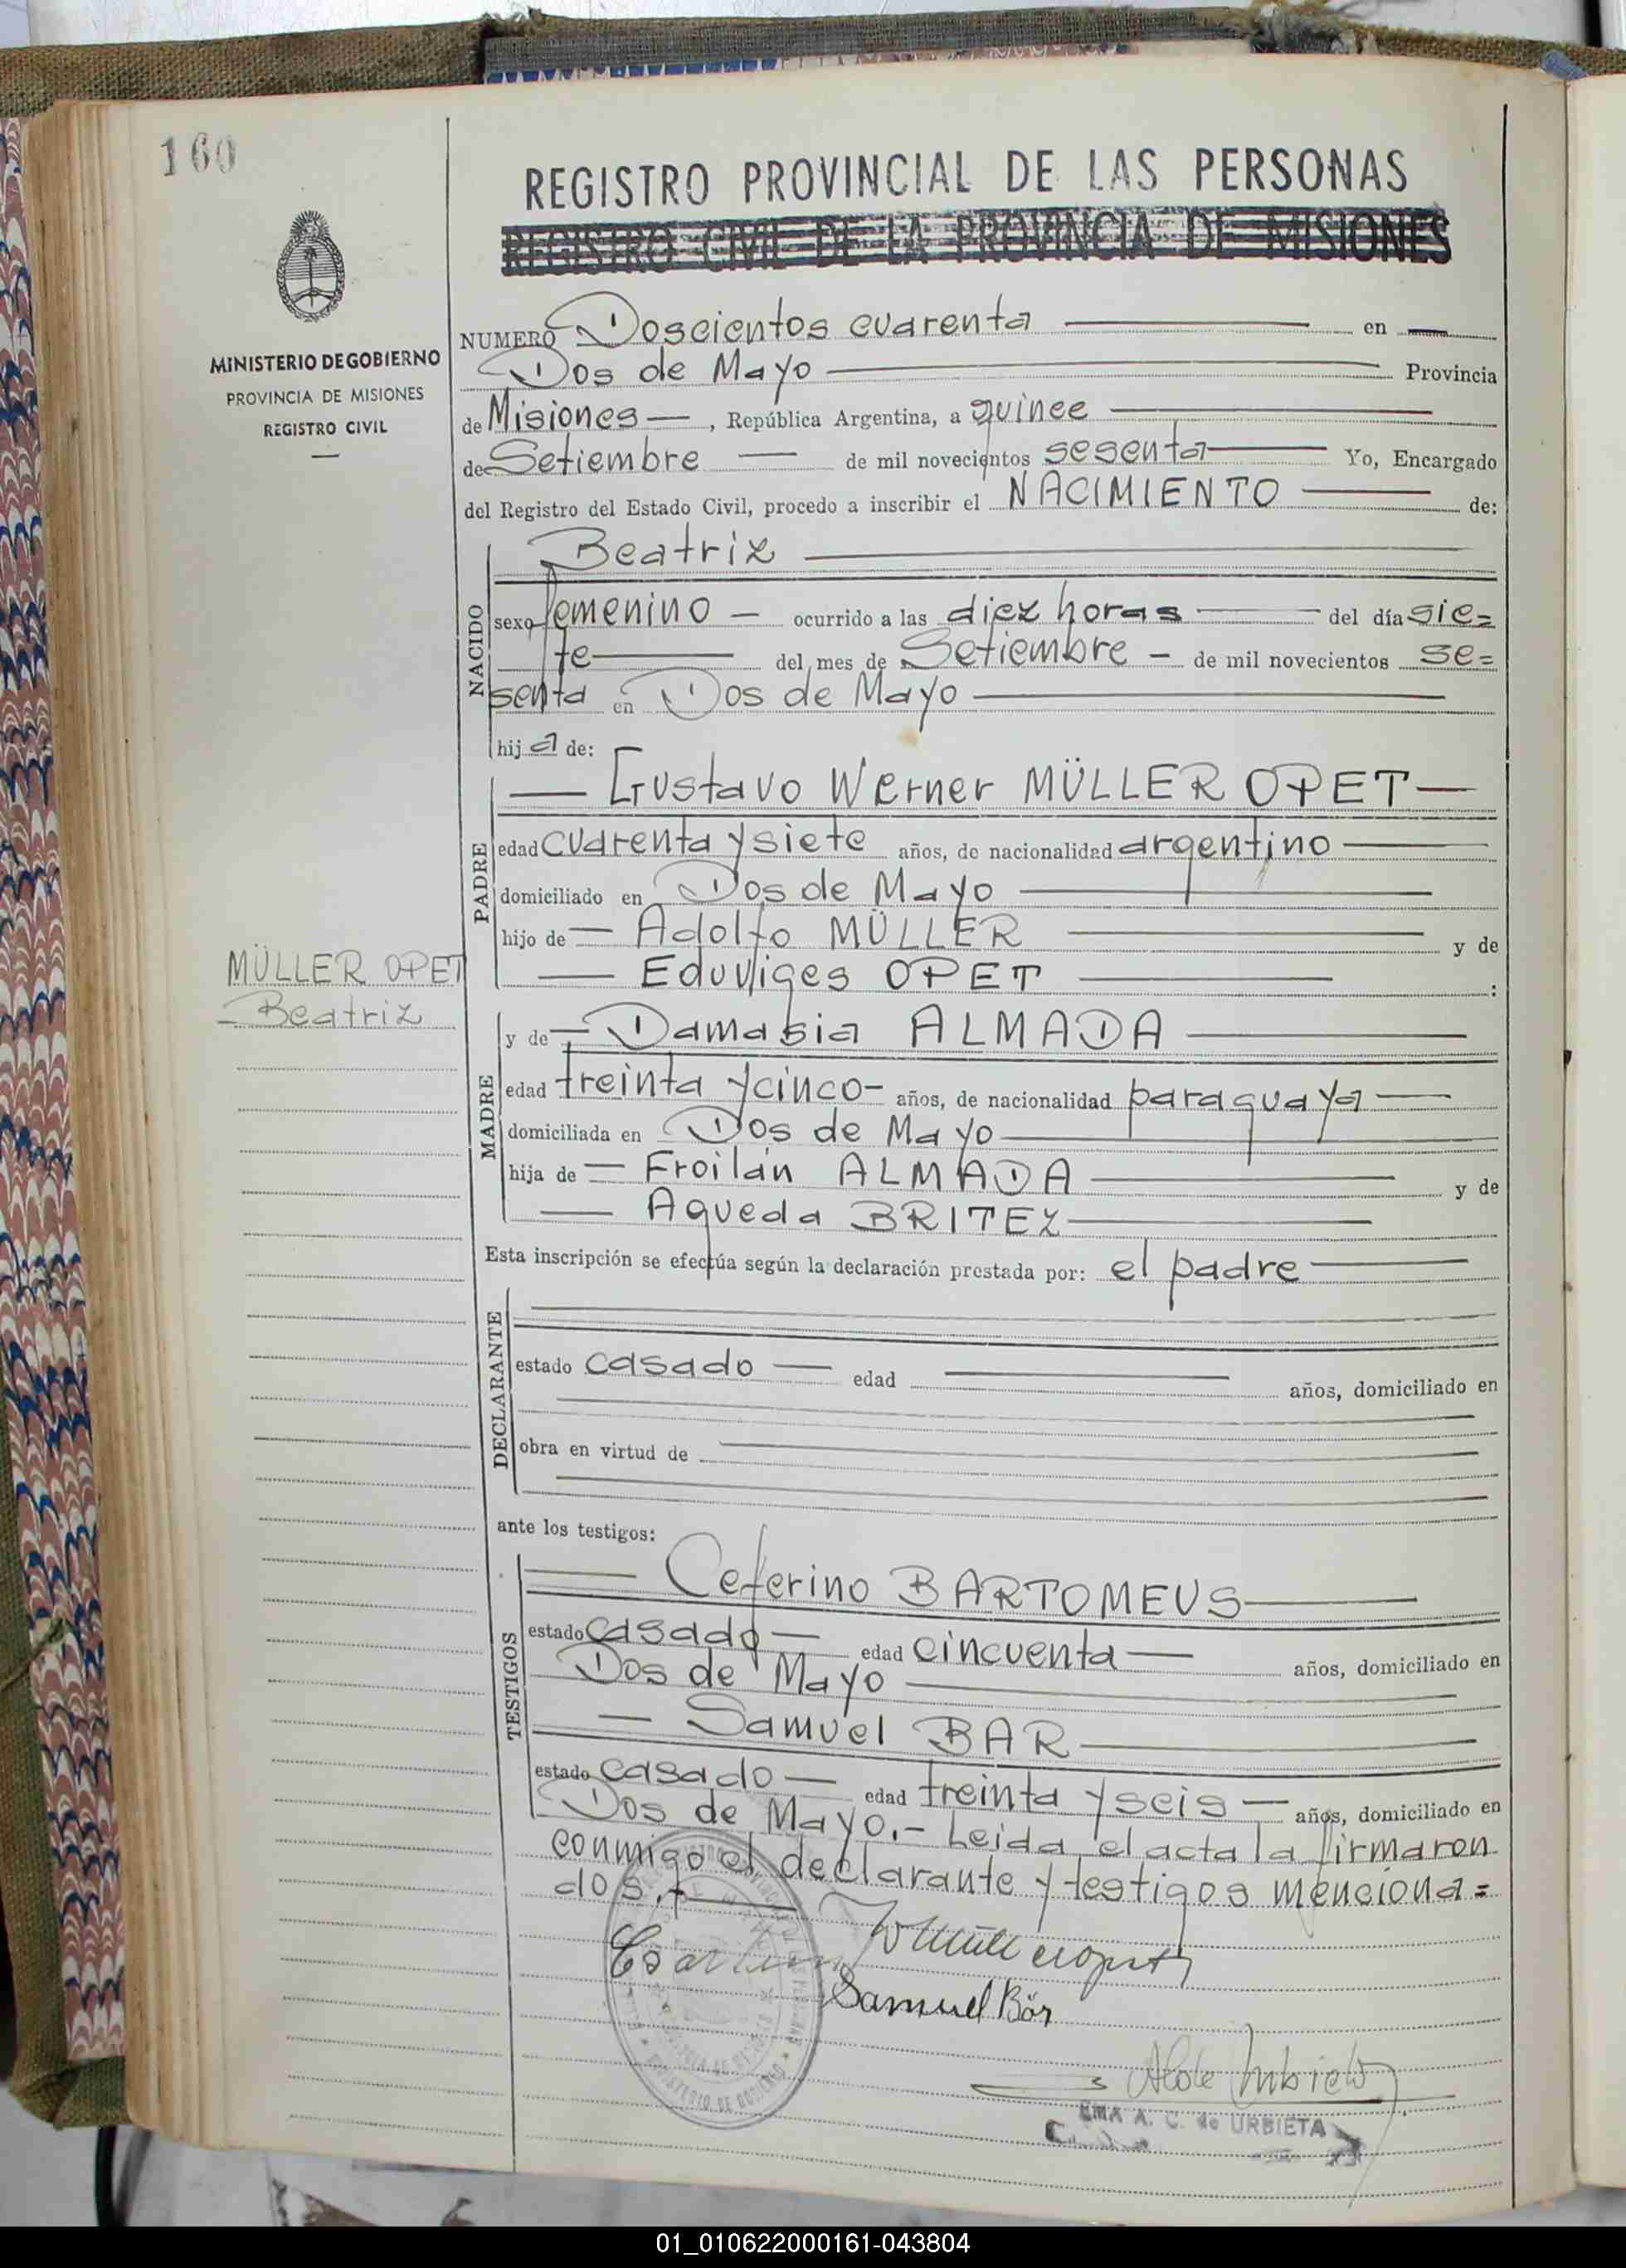 160
REGISTRO PROVINCIAL DE LAS PERSONAS
REGISTRO CIVIL DE LA PROVINCIA DE MISIONES
MINISTERIO DE GOBIERNO
PROVINCIA DE MISIONES
REGISTRO CIVIL
NUMERO Doscientos cuarenta en
Dos de Mayo Provincia
de Misiones, República Argentina, a quince
de Setiembre de mil novecientos sesenta Yo, Encargado
del Registro del Estado Civil, procedo a inscribir el NACIMIENTO de:
NACIDO
Beatriz
sexo femenino ocurrido a las diez horas del día sie=
te del mes de Setiembre de mil novecientos se=
senta en Dos de Mayo
hija de:
PADRE
Gustavo Werner MÜLLER OPET
edad cuarenta y siete años, de nacionalidad argentino
domiciliado en Dos de Mayo
hijo de Adolfo MÜLLER y de
Eduviges OPET :
MÜLLER OPET
Beatriz
MADRE
y de Damasia ALMADA
edad treinta y cinco años, de nacionalidad paraguaya
domiciliada en Dos de Mayo
hija de Froilán ALMADA y de
Agueda BRITEZ
Esta inscripción se efectúa según la declaración prestada por: el padre
DECLARANTE
estado casado edad años, domiciliado en
obra en virtud de
ante los testigos:
TESTIGOS
Ceferino BARTOMEUS
estado casado edad cincuenta años, domiciliado en
Dos de Mayo
Samuel BAR
estado casado edad treinta y seis años, domiciliado en
Dos de Mayo.- Leida el acta la firmaron
conmigo el declarante y testigos menciona=
dos.-
Samuel Bär
EMA A. C. de URBIETA
01_010622000161-043804